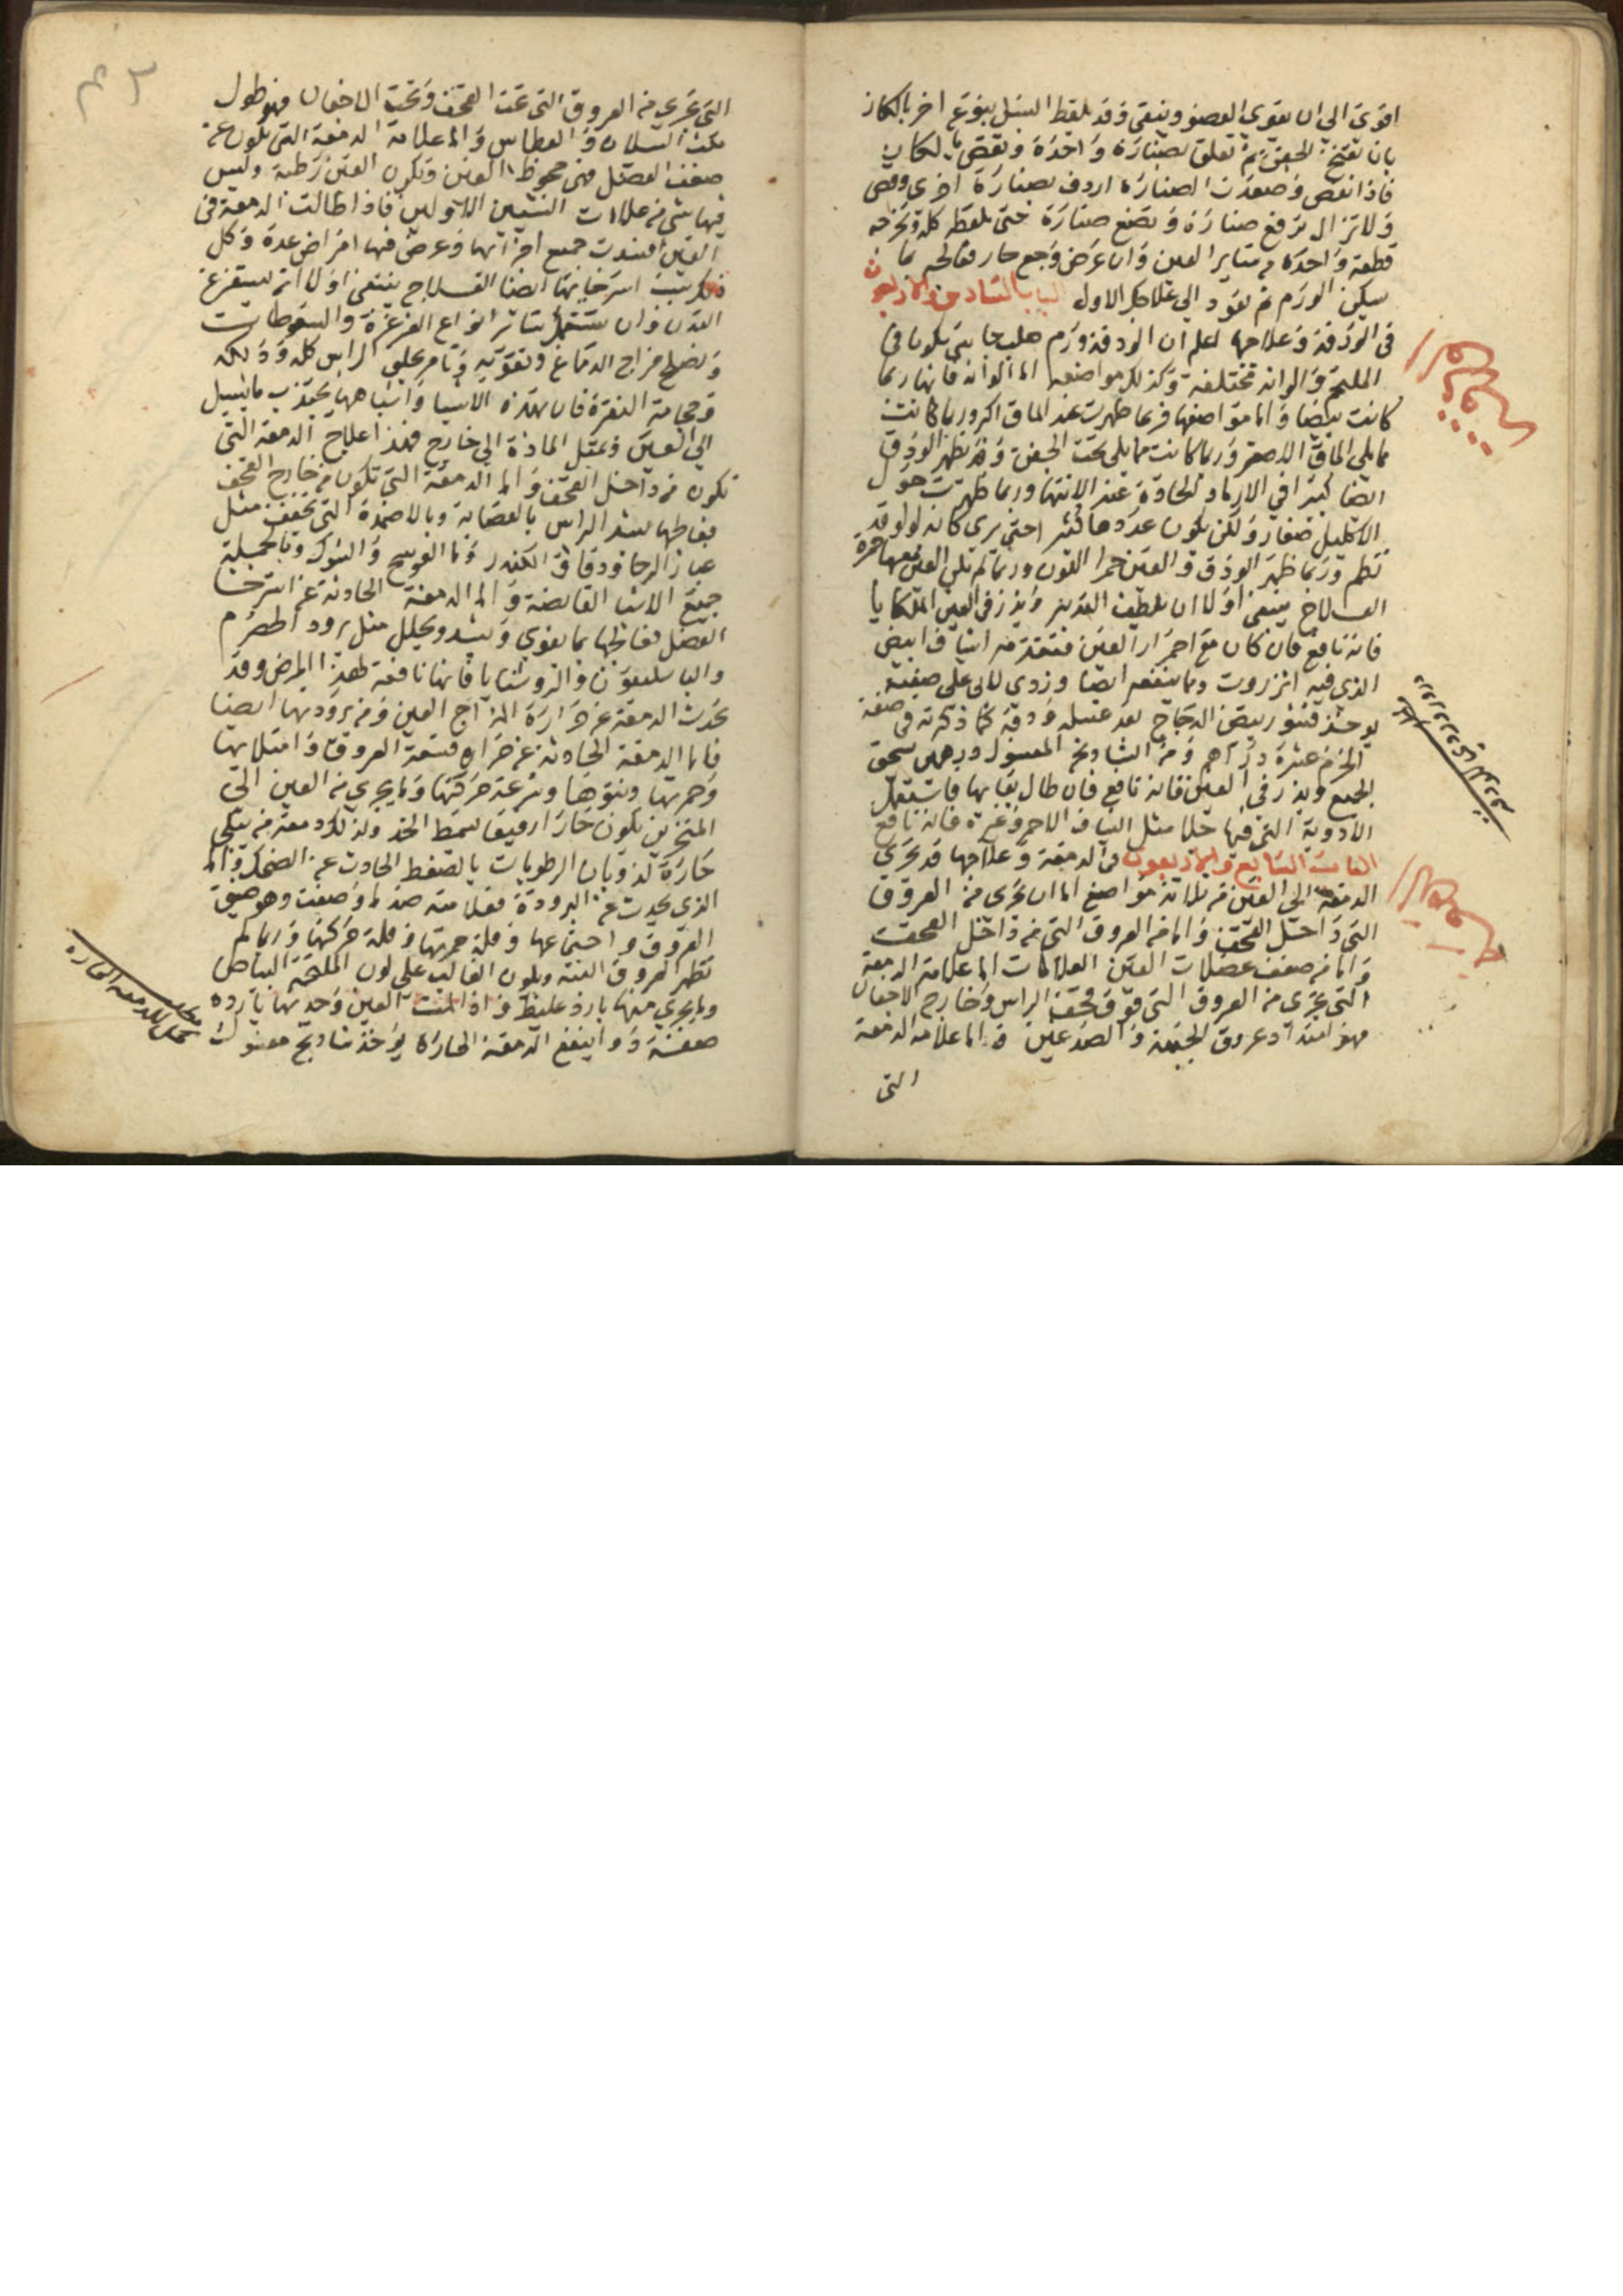 اقوى الى ان يقوى العضو وينقى وقد يلقط السبل بنوع اخر بالكاز
بان تفتح الجفن ثم تعلق بصنارة واحدة وتقص بالكاز
فاذا انقص وصعدت الصنارة اردف بصنارة اخرى وقص
ولا تزال ترفع صنارة وتضع صنارة حتى تلقطه كله وتخرجه
قطعة واحدة من ساير العين وان عرض وجع حار فعالجه بما
يسكن الورم ثم تعود الى علاجك الاول الباب السادس والاربعون
فى الودقة وعلاجها اعلم ان الودقة ورم صلب جاسى يكون فى
الملتحم والوانه مختلفة وكذلك مواضعه اما الوانه فانها ربما
كانت بيضا واما مواضعها فربما ظهرت عند الماق الاكبر وربما كانت
مما يلى الماق الاصغر وربما كانت مما يلى تحت الجفن وقد تظهر الودق
ايضا كثيرا فى الارماد الحادة عند الانتها وربما ظهرت حول
الاكليل صغار ولكن يكون عددها كثير احتى يرى كانه لولو قد
نظم وربما ظهر الودق فى العين حمرا اللون وربما لم تكن العين معها حمرة
العلاج ينبغى اولا ان تلطف التدبير ويذر فى العين الملكايا
فانه نافع فان كان مع احمرار العين فتقدم اشياف ابيض
الذى فيه انزروت ومما ينفعه ايضا وردى لالى على صفته
يوخذ قشور بيض الدجاج بعد غسله ودقه كما ذكرته فى صفة
الخرم عشرة دراهم ومن الشادنج المغسول درهمين يسحق
الجميع ويذر فى العين فانه نافع فان طال بقايها فاستعمل
الادوية التى فيها حلا مثل الشياف الاحمر وغيره فانه نافع
الباب السابع والاربعون فى الدمعة وعلاجها قد تجرى
الدمعة الى العين من ثلاثة مواضع اما ان تجرى من العروق
التى داخل القحف واما من العروق التى من داخل القحف
واما من ضعف عضلات العين العلامات اما علامة الدمعة
التى تجرى من العروق التى فوق قحف الراس وخارج الاجفان
فهو امتداد عروق الجبهة والصدغين واما علامة الدمعة
التى
التى تجرى من العروق التى تحت القحف وتحت الاجفان فهو طول
مكث السيلان والعطاس واما علامة الدمعة التى تكون عن
ضعف العضل فهى جحوظ العين وتكون العين رطبة وليس
فيها شى من علامات الشيين الاولين فاذا طالت الدمعة فى
العين افسدت جميع اجزائها وعرض فيها امراض عدة وكل
ذلك بسبب استرخايها ايضا العلاج ينبغى اولا ان تستفرغ
البدن وان تستعمل ساير انواع الغرغرة والسعوطات
وتصلح مزاج الدماغ وتقويه وتامر بحلق الراس كله ودلكه
وحجامة النقرة فان هذه الاشيا واشباهها تجذب ما يسيل
الى العين وتميل المادة الى خارج فهذا علاج الدمعة التى
تكون من داخل القحف واما الدمعة التى تكون من خارج القحف
فعالجها بشد الراس بالعصابة وبالاضمدة التى تجفف مثل
غبار الرحا ودقاق الكندر وما العوسج والشوك وبالجملة
جميع الاشيا القابضة واما الدمعة الحادثة عن استرخا
العضل فعالجها بما يقوى ويشد ويحلل مثل برود الحصرم
والباسليقون والروشنايا فانها نافعة لهذا المرض وقد
تحدث الدمعة عن حرارة المزاج العين ومن برودتها ايضا
فاما الدمعة الحادثة عن حرارة فسعة العروق وامتلايها
وحمرتها ونتوها وسرعة حركتها وما يجرى من العين الى
المنخرين يكون حارا رقيقا يسمط الخد وكذلك دمعة من يبكى
حارة لذوبان الرطوبات بالضغط الحادث عن الضحك واما
الذى يحدث عن البرودة فعلامته ضد ما وصفت وهو ضيق
العروق واجتماعها وقلة حمرتها وقلة حركتها وربما لم
تظهر العروق البتة ويكون الغالب على لون الملتحم البياض
وما يجرى منها بارد غليظ واذا لمست العين وجدتها باردة
صفة دوا ينفع الدمعة الحارة يوخذ شادنج مغسول